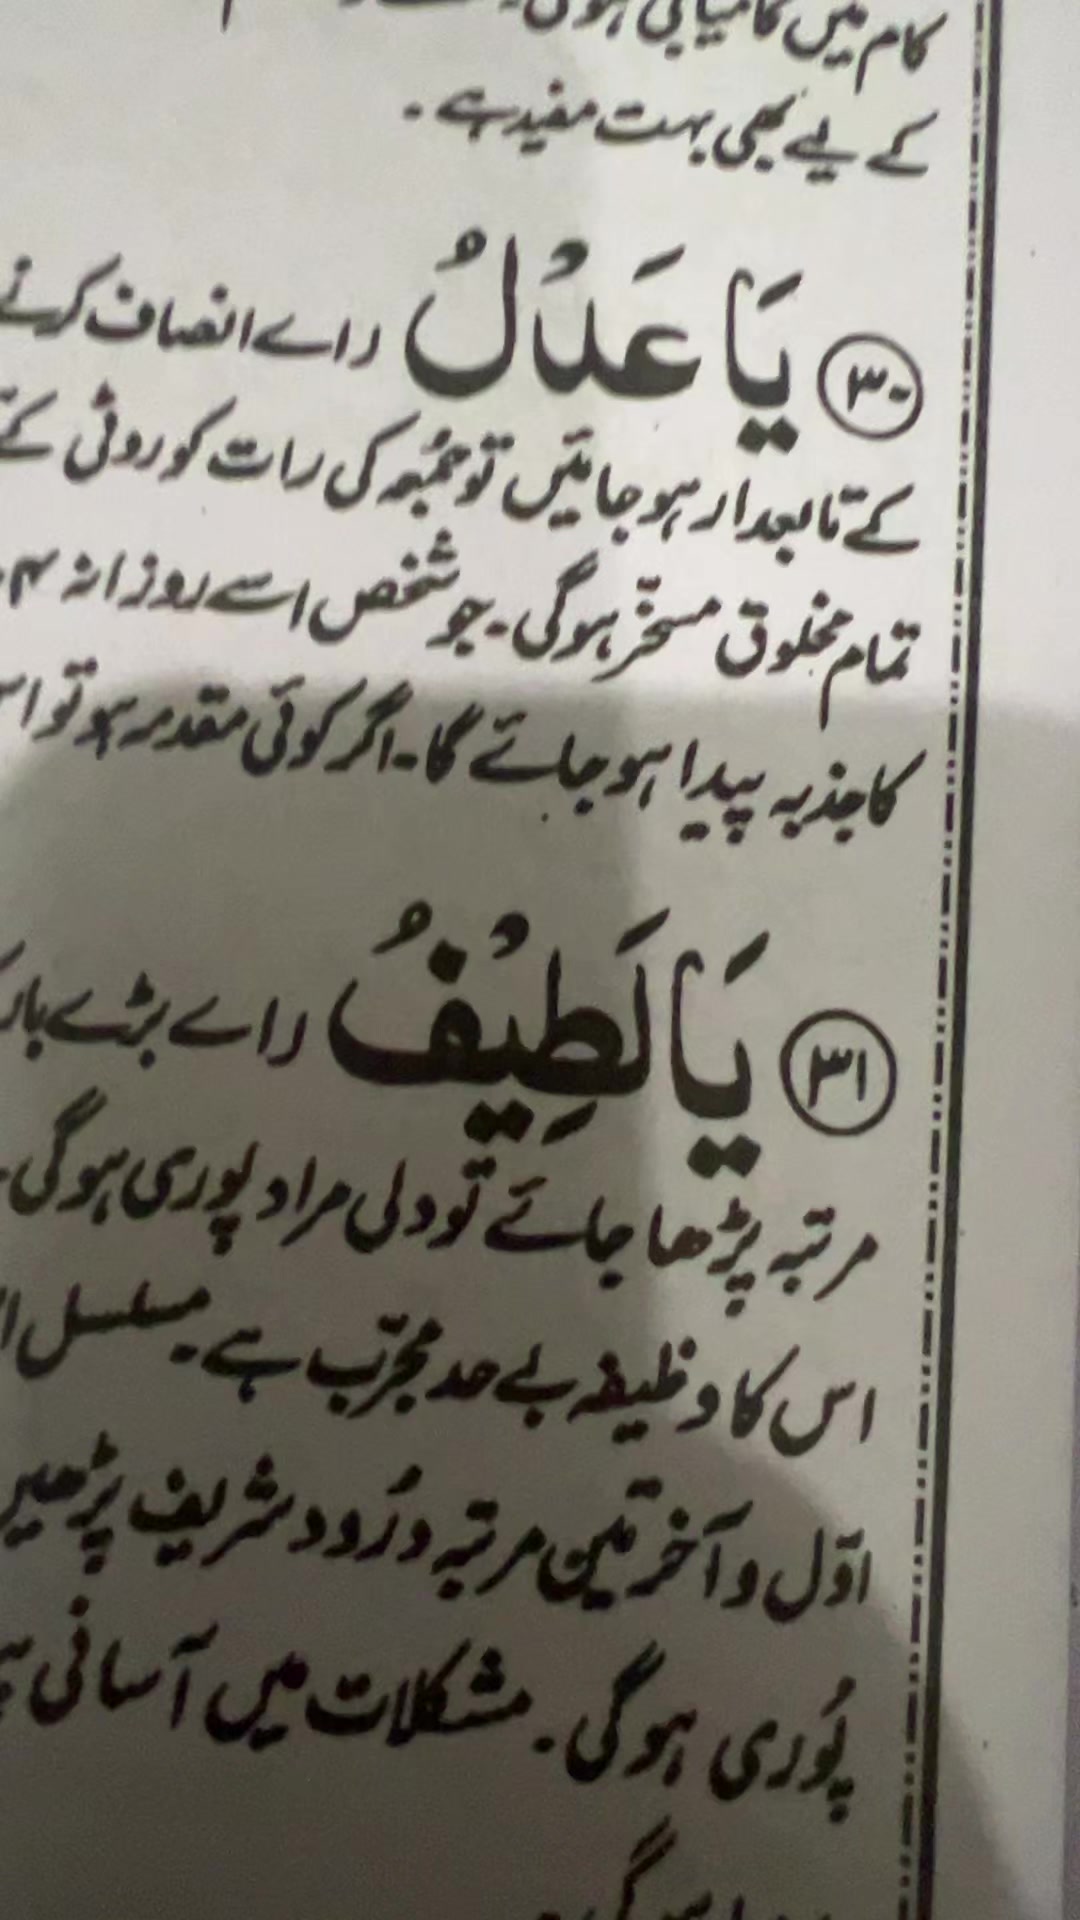 کام میں کامیابی ہوگی
کے لیے بھی بہت مفید ہے۔
۳۰ یَا عَدْلُ (اے انصاف کرنے
کے تابعدار ہو جائیں تو جُمعہ کی رات کو روٹی کے
تمام مخلوق مسخّر ہوگی۔ جو شخص اسے روزانہ
کا جذبہ پیدا ہو جائے گا۔ اگر کوئی مقدمہ ہو تو
۳۱ یَا لَطِیْفُ (اے بڑے
مرتبہ پڑھا جائے تو دلی مراد پوری ہوگی۔
اس کا وظیفہ بے حد مجرّب ہے۔ مسلسل
اوّل و آخر تین مرتبہ دُرُود شریف پڑھیں
پُوری ہوگی۔ مشکلات میں آسانی